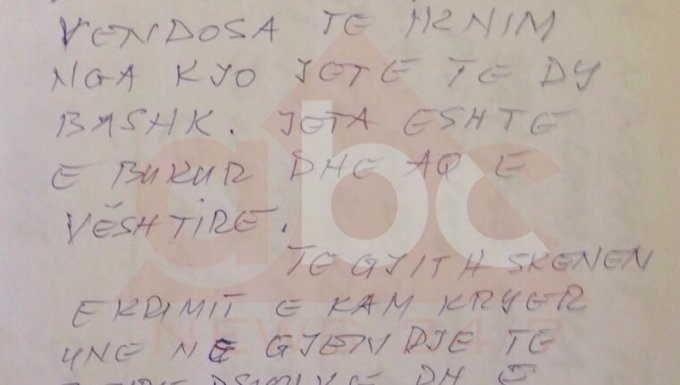 VENDOSA TE IKNIM
NGA KJO JETE TE DY
BASHK. JETA ESHTE
E BUKUR DHE AQ E
VËSHTIRE.
TE GJITH SKENEN
E KRIMIT E KAM KRYER
UNE NE GJENDJE TE
DH E
abc
NEWS 24/7